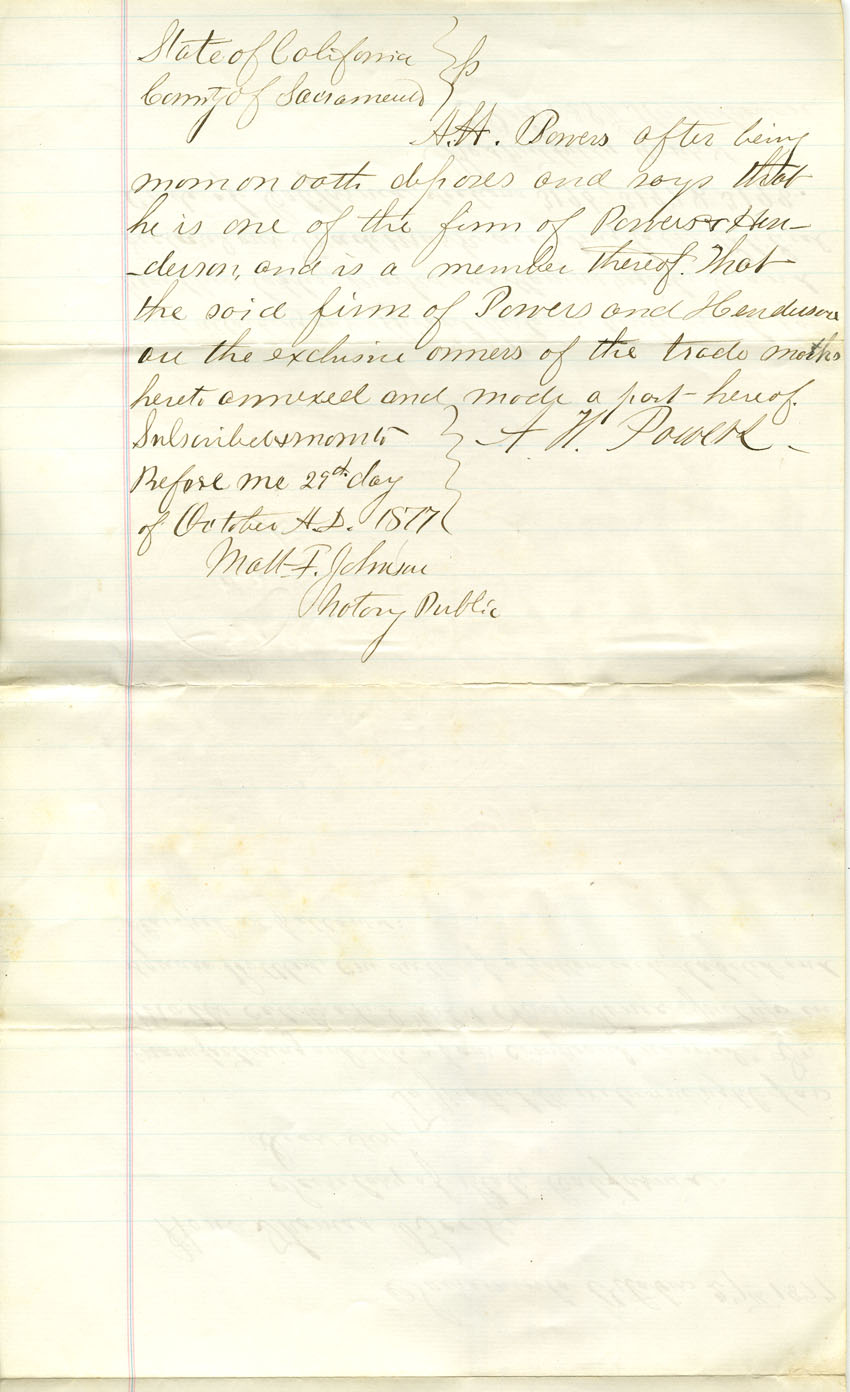 State of California } ss
County of Sacramento }
A.H. Powers after being
sworn on oath deposes and says that
he is one of the firm of Powers & Hen-
-derson, and is a member thereof. That
the said firm of Powers and Henderson
are the exclusive owners of the trade marks
hereto annexed and made a part hereof.
Subscribed & sworn to } A. H. Powers
Before me 29th day
of October A.D. 1877
Matt F. Johnson
Notary Public